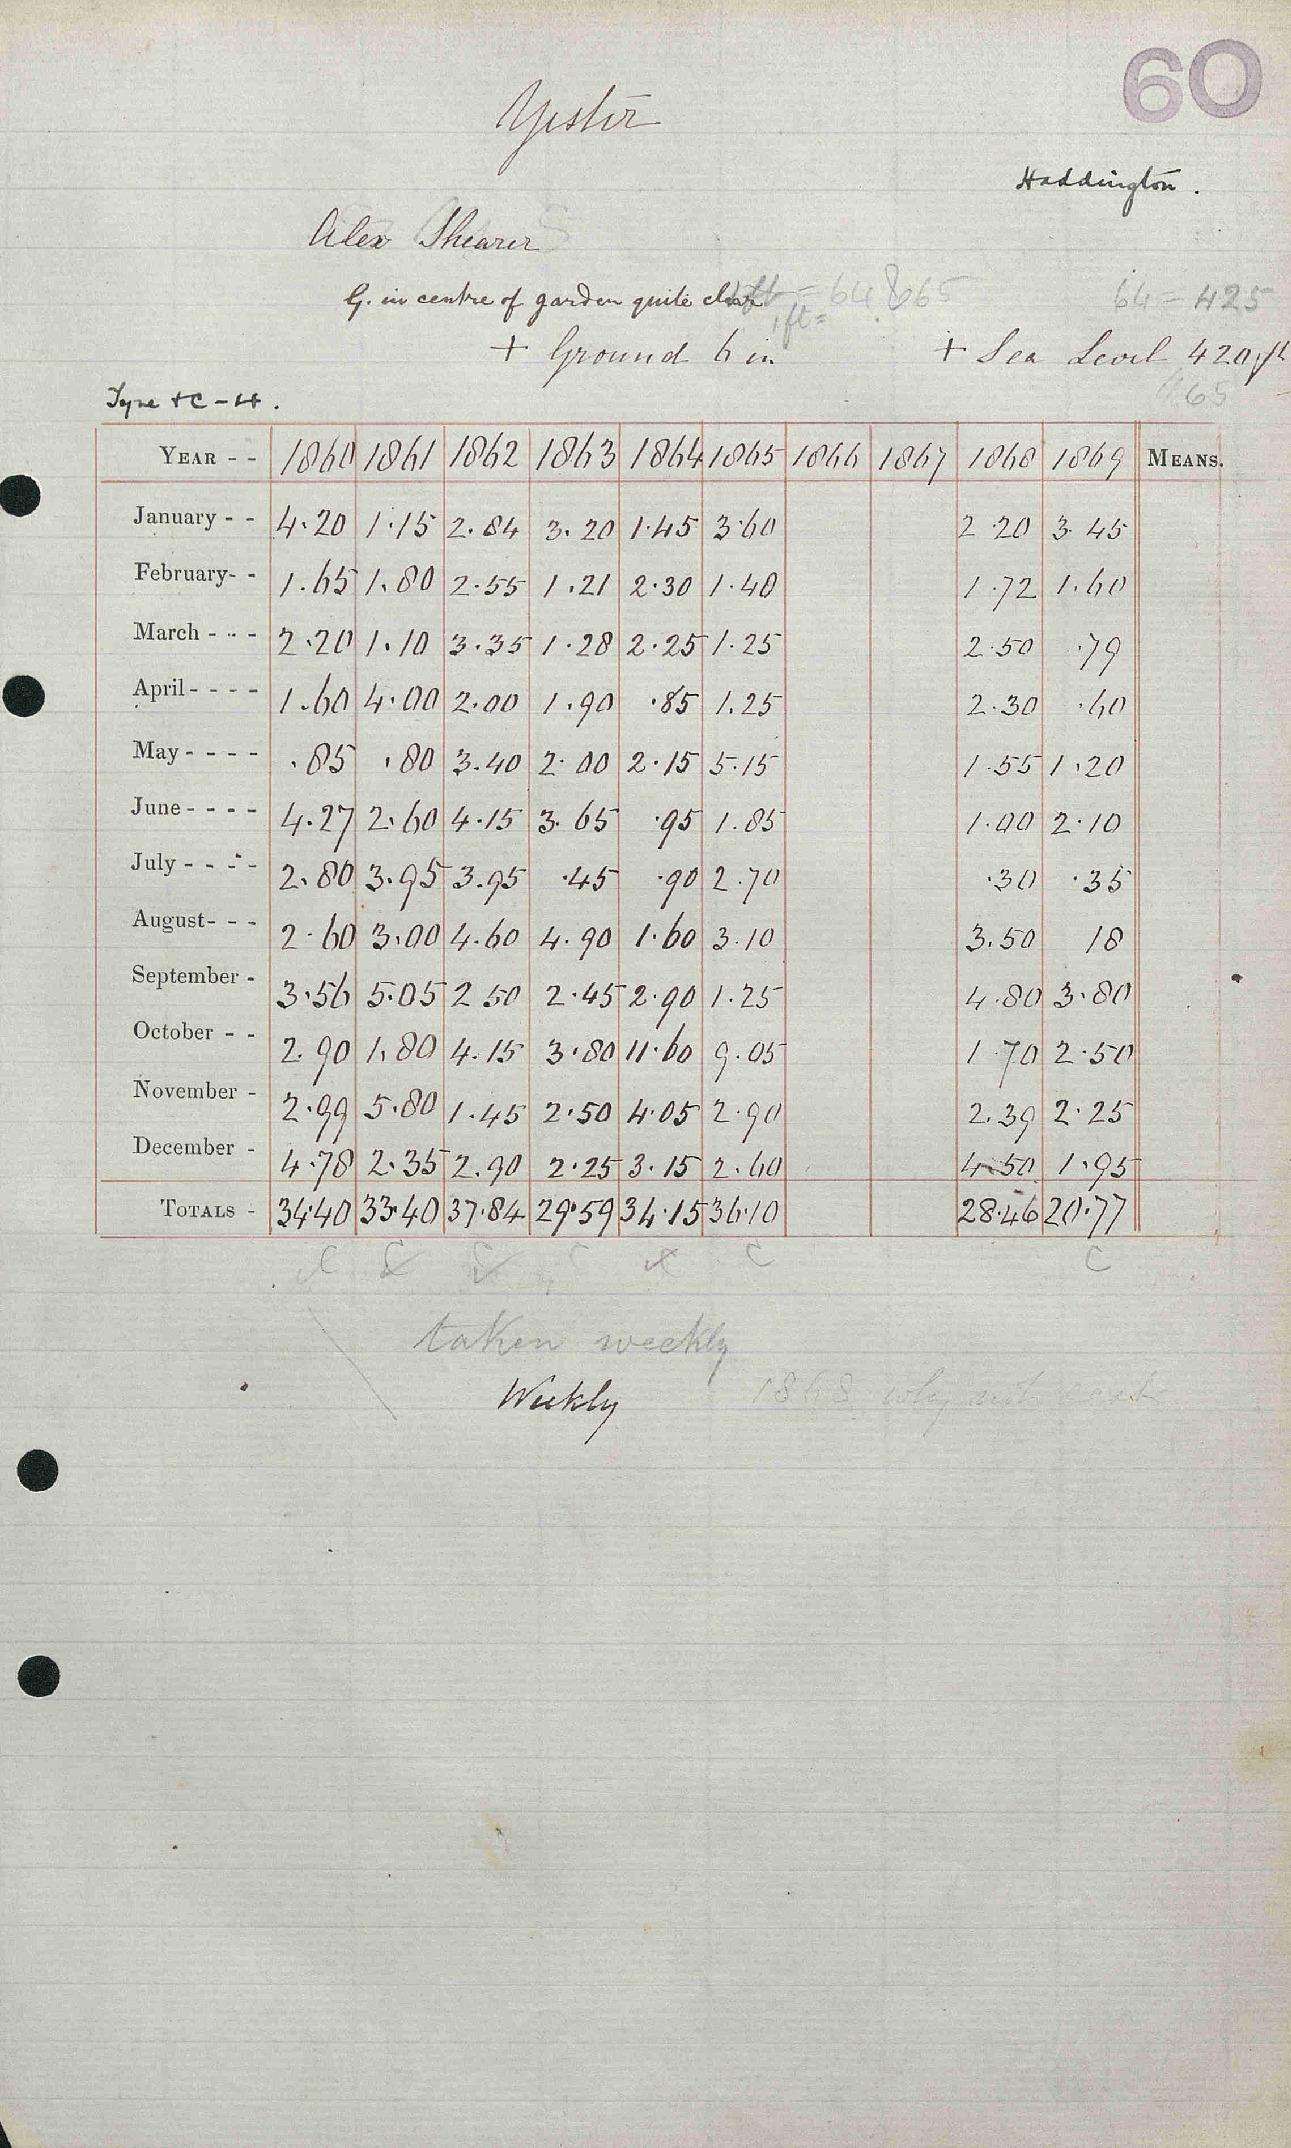 60
Yester
Haddington.
Alex Shearer
G. in centre of garden quite clear
1 ft = 64 . 865 64 = 425
+ Ground 6 in + Sea Level 420 ft
465
Type & C - H.
YEAR - - 1860 1861 1862 1863 1864 1865 1866 1867 1868 1869 MEANS.
January - - 4.20 1.15 2.84 3.20 1.45 3.60 2.20 3.45
February- - 1.65 1.80 2.55 1.21 2.30 1.40 1.72 1.60
March - - - 2.20 1.10 3.35 1.28 2.25 1.25 2.50 .79
April - - - - 1.60 4.00 2.00 1.90 .85 1.25 2.30 .60
May - - - - .85 .80 3.40 2.00 2.15 5.15 1.55 1.20
June - - - - 4.27 2.60 4.15 3.65 .95 1.85 1.00 2.10
July - - - - 2.80 3.95 3.95 .45 .90 2.70 .30 .35
August- - - 2.60 3.00 4.60 4.90 1.60 3.10 3.50 18
September - 3.56 5.05 2 50 2.45 2.90 1.25 4.80 3.80
October - - 2.90 1.80 4.15 3.80 11.60 9.05 1.70 2.50
November - 2.99 5.80 1.45 2.50 4.05 2.90 2.39 2.25
December - 4.78 2.35 2.90 2.25 3.15 2.60 4.50 1.95
TOTALS - 34.40 33.40 37.84 29.59 34.15 36.10 28.46 20.77
C C C C C C C
taken weekly
Weekly 1868 why